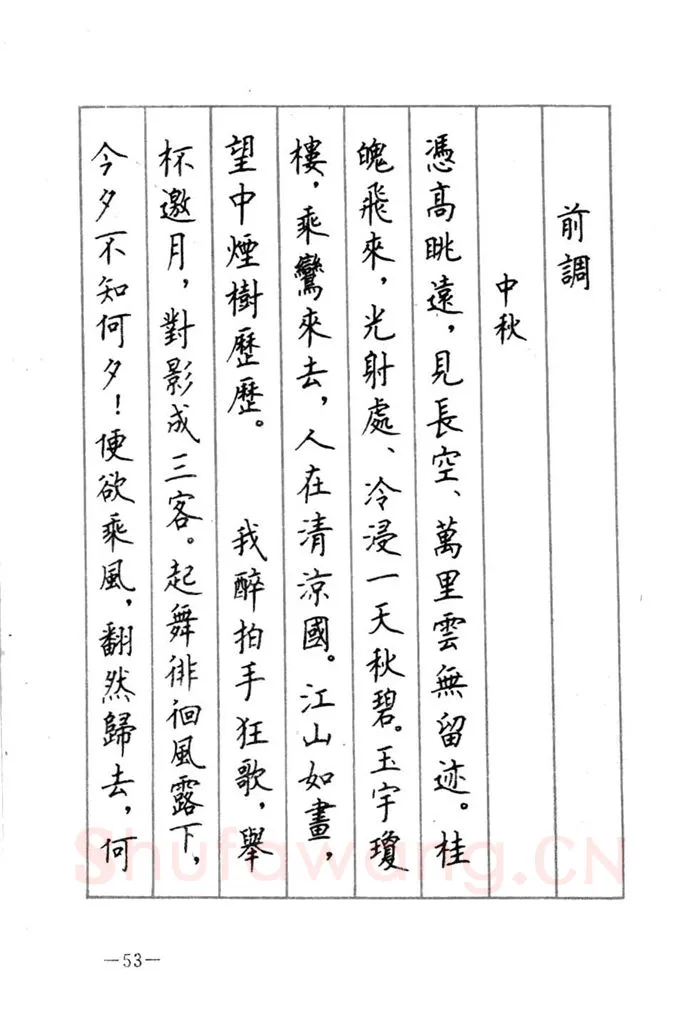 前調
中秋
憑高眺遠，見長空、萬里雲無留迹。桂
魄飛來，光射處、冷浸一天秋碧。玉宇瓊
樓，乘鸞來去，人在清涼國。江山如畫，
望中煙樹歷歷。　我醉拍手狂歌，舉
杯邀月，對影成三客。起舞徘徊風露下，
今夕不知何夕！便欲乘風，翻然歸去，何
—53—
Shufawang.CN